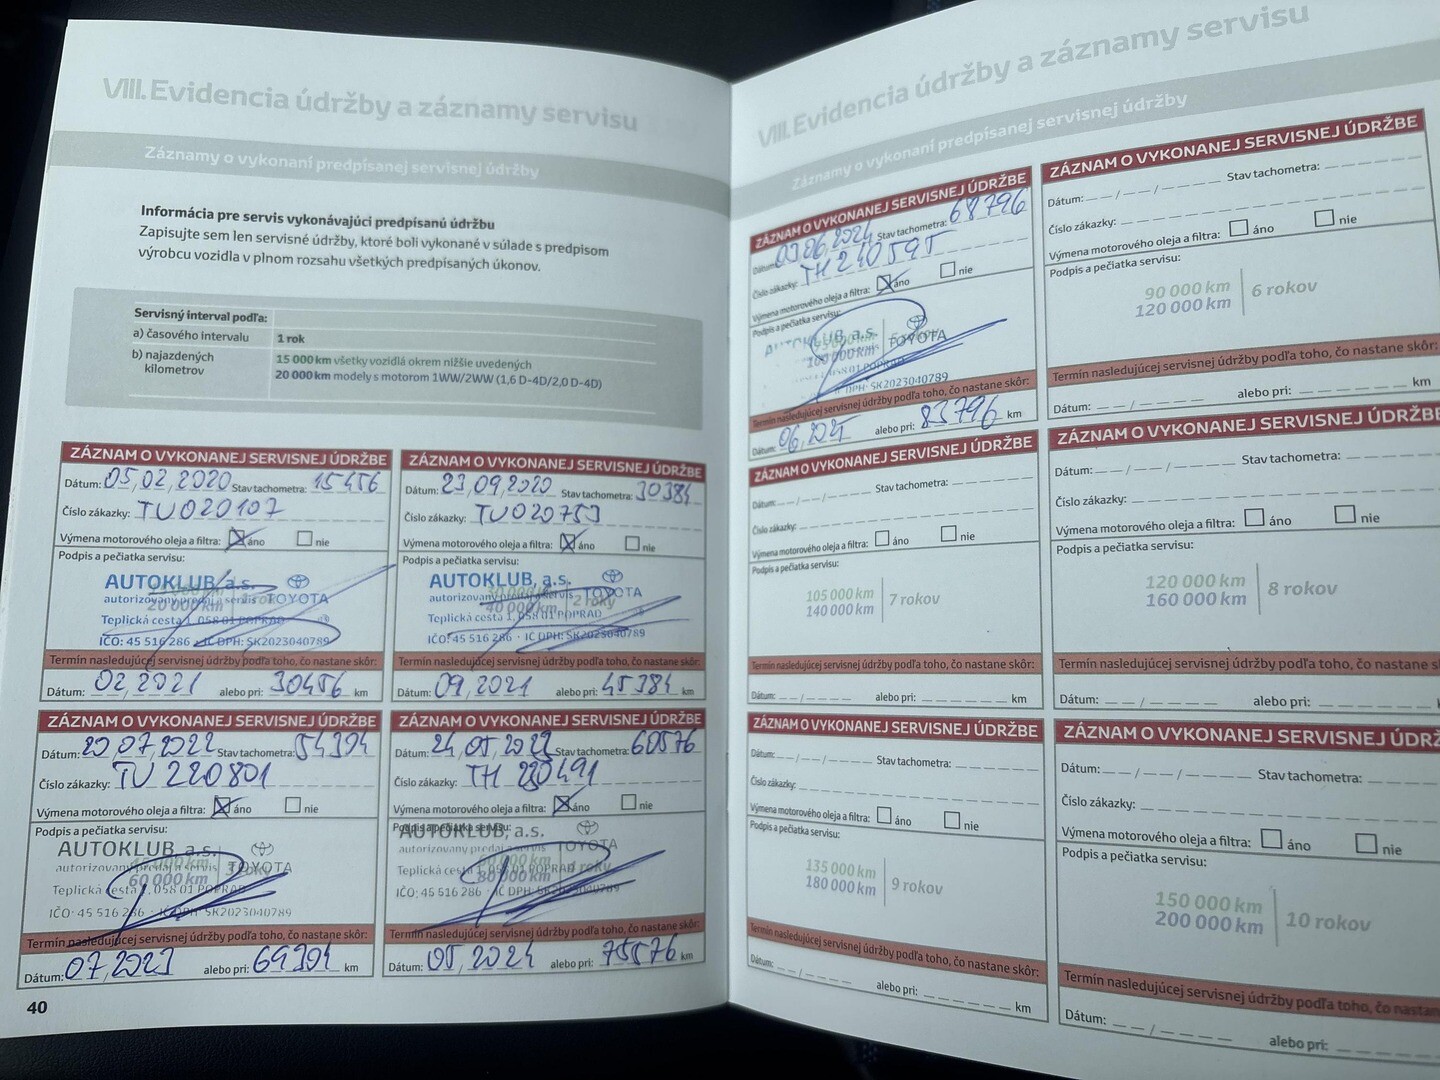 VIII. Evidencia údržby a záznamy servisu
Záznamy o vykonaní predpísanej servisnej údržby
Informácia pre servis vykonávajúci predpísanú údržbu
Zapisujte sem len servisné údržby, ktoré boli vykonané v súlade s predpisom
výrobcu vozidla v plnom rozsahu všetkých predpísaných úkonov.
Servisný interval podľa:
a) časového intervalu 1 rok
b) najazdených kilometrov
15 000 km všetky vozidlá okrem nižšie uvedených
20 000 km modely s motorom 1WW/2WW (1,6 D-4D/2,0 D-4D)
ZÁZNAM O VYKONANEJ SERVISNEJ ÚDRŽBE
Dátum: 05.02.2020 Stav tachometra: 15456
Číslo zákazky: TU020107
Výmena motorového oleja a filtra: áno nie
Podpis a pečiatka servisu:
AUTOKLUB, a.s.
autorizovaný predaj a servis TOYOTA
20 000 km
Teplická cesta 1, 058 01 POPRAD
IČO: 45 516 286 · IČ DPH: SK2023040789
Termín nasledujúcej servisnej údržby podľa toho, čo nastane skôr:
Dátum: 02/2021 alebo pri: 30456 km
ZÁZNAM O VYKONANEJ SERVISNEJ ÚDRŽBE
Dátum: 23.09.2020 Stav tachometra: 30384
Číslo zákazky: TU020753
Výmena motorového oleja a filtra: áno nie
Podpis a pečiatka servisu:
AUTOKLUB, a.s.
autorizovaný predaj a servis TOYOTA
40 000 km 2 roky
Teplická cesta 1, 058 01 POPRAD
IČO: 45 516 286 · IČ DPH: SK2023040789
Termín nasledujúcej servisnej údržby podľa toho, čo nastane skôr:
Dátum: 09/2021 alebo pri: 45384 km
ZÁZNAM O VYKONANEJ SERVISNEJ ÚDRŽBE
Dátum: 20.07.2022 Stav tachometra: 54304
Číslo zákazky: TU 220801
Výmena motorového oleja a filtra: áno nie
Podpis a pečiatka servisu:
AUTOKLUB, a.s.
autorizovaný predaj a servis TOYOTA
60 000 km
Teplická cesta 1, 058 01 POPRAD
IČO: 45 516 286 · IČ DPH: SK2023040789
Termín nasledujúcej servisnej údržby podľa toho, čo nastane skôr:
Dátum: 07/2023 alebo pri: 69304 km
ZÁZNAM O VYKONANEJ SERVISNEJ ÚDRŽBE
Dátum: Stav tachometra: 60576
Číslo zákazky: TH
Výmena motorového oleja a filtra: áno nie
Podpis a pečiatka servisu:
AUTOKLUB, a.s.
autorizovaný predaj a servis TOYOTA
80 000 km 4 roky
Teplická cesta 1, 058 01 POPRAD
IČO: 45 516 286 · IČ DPH: SK2023040789
Termín nasledujúcej servisnej údržby podľa toho, čo nastane skôr:
Dátum: 05/2024 alebo pri: 75576 km
40
VIII. Evidencia údržby a záznamy servisu
Záznamy o vykonaní predpísanej servisnej údržby
ZÁZNAM O VYKONANEJ SERVISNEJ ÚDRŽBE
Dátum: 03.06.2024 Stav tachometra: 68796
Číslo zákazky: TH 240595
Výmena motorového oleja a filtra: áno nie
Podpis a pečiatka servisu:
AUTOKLUB, a.s. TOYOTA
100 000 km
058 01 POPRAD
IČ DPH: SK2023040789
Termín nasledujúcej servisnej údržby podľa toho, čo nastane skôr:
Dátum: alebo pri: 83796 km
ZÁZNAM O VYKONANEJ SERVISNEJ ÚDRŽBE
Dátum: Stav tachometra:
Číslo zákazky:
Výmena motorového oleja a filtra: áno nie
Podpis a pečiatka servisu:
90 000 km
120 000 km 6 rokov
Termín nasledujúcej servisnej údržby podľa toho, čo nastane skôr:
Dátum: alebo pri: km
ZÁZNAM O VYKONANEJ SERVISNEJ ÚDRŽBE
Dátum: Stav tachometra:
Číslo zákazky:
Výmena motorového oleja a filtra: áno nie
Podpis a pečiatka servisu:
105 000 km
140 000 km 7 rokov
Termín nasledujúcej servisnej údržby podľa toho, čo nastane skôr:
Dátum: alebo pri: km
ZÁZNAM O VYKONANEJ SERVISNEJ ÚDRŽBE
Dátum: Stav tachometra:
Číslo zákazky:
Výmena motorového oleja a filtra: áno nie
Podpis a pečiatka servisu:
120 000 km
160 000 km 8 rokov
Termín nasledujúcej servisnej údržby podľa toho, čo nastane s
Dátum: alebo pri:
ZÁZNAM O VYKONANEJ SERVISNEJ ÚDRŽBE
Dátum: Stav tachometra:
Číslo zákazky:
Výmena motorového oleja a filtra: áno nie
Podpis a pečiatka servisu:
135 000 km
180 000 km 9 rokov
Termín nasledujúcej servisnej údržby podľa toho, čo nastane skôr:
Dátum: alebo pri: km
ZÁZNAM O VYKONANEJ SERVISNEJ ÚDRŽ
Dátum: Stav tachometra:
Číslo zákazky:
Výmena motorového oleja a filtra: áno nie
Podpis a pečiatka servisu:
150 000 km
200 000 km 10 rokov
Termín nasledujúcej servisnej údržby podľa toho, čo nastane
Dátum: alebo pri: